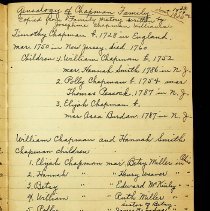 Genealogy of Chapman Family
Copied from Family history written by
Josephine Chapman
Timothy Chapman b. 1728 in England,
mar 1750 in New Jersey, died 1760
Children 1. William Chapman b, 1752
mar. Hannah Smith 1786 in N.J.
2. Polly Chapman b, 1754 mar
Thomas Peacock, 1787 in N.J.
3. Elijah Chapman b,
mar Asea Burdaw 1787 in N.J.
William Chapman and Hannah Smith
Chapman children
1. Elijah Chapman mar Betsy Miller
2. Hannah " Henry Weaver
3. Betsey " Edward McKinley
4. William " Ruth Miller
5. Polly " James